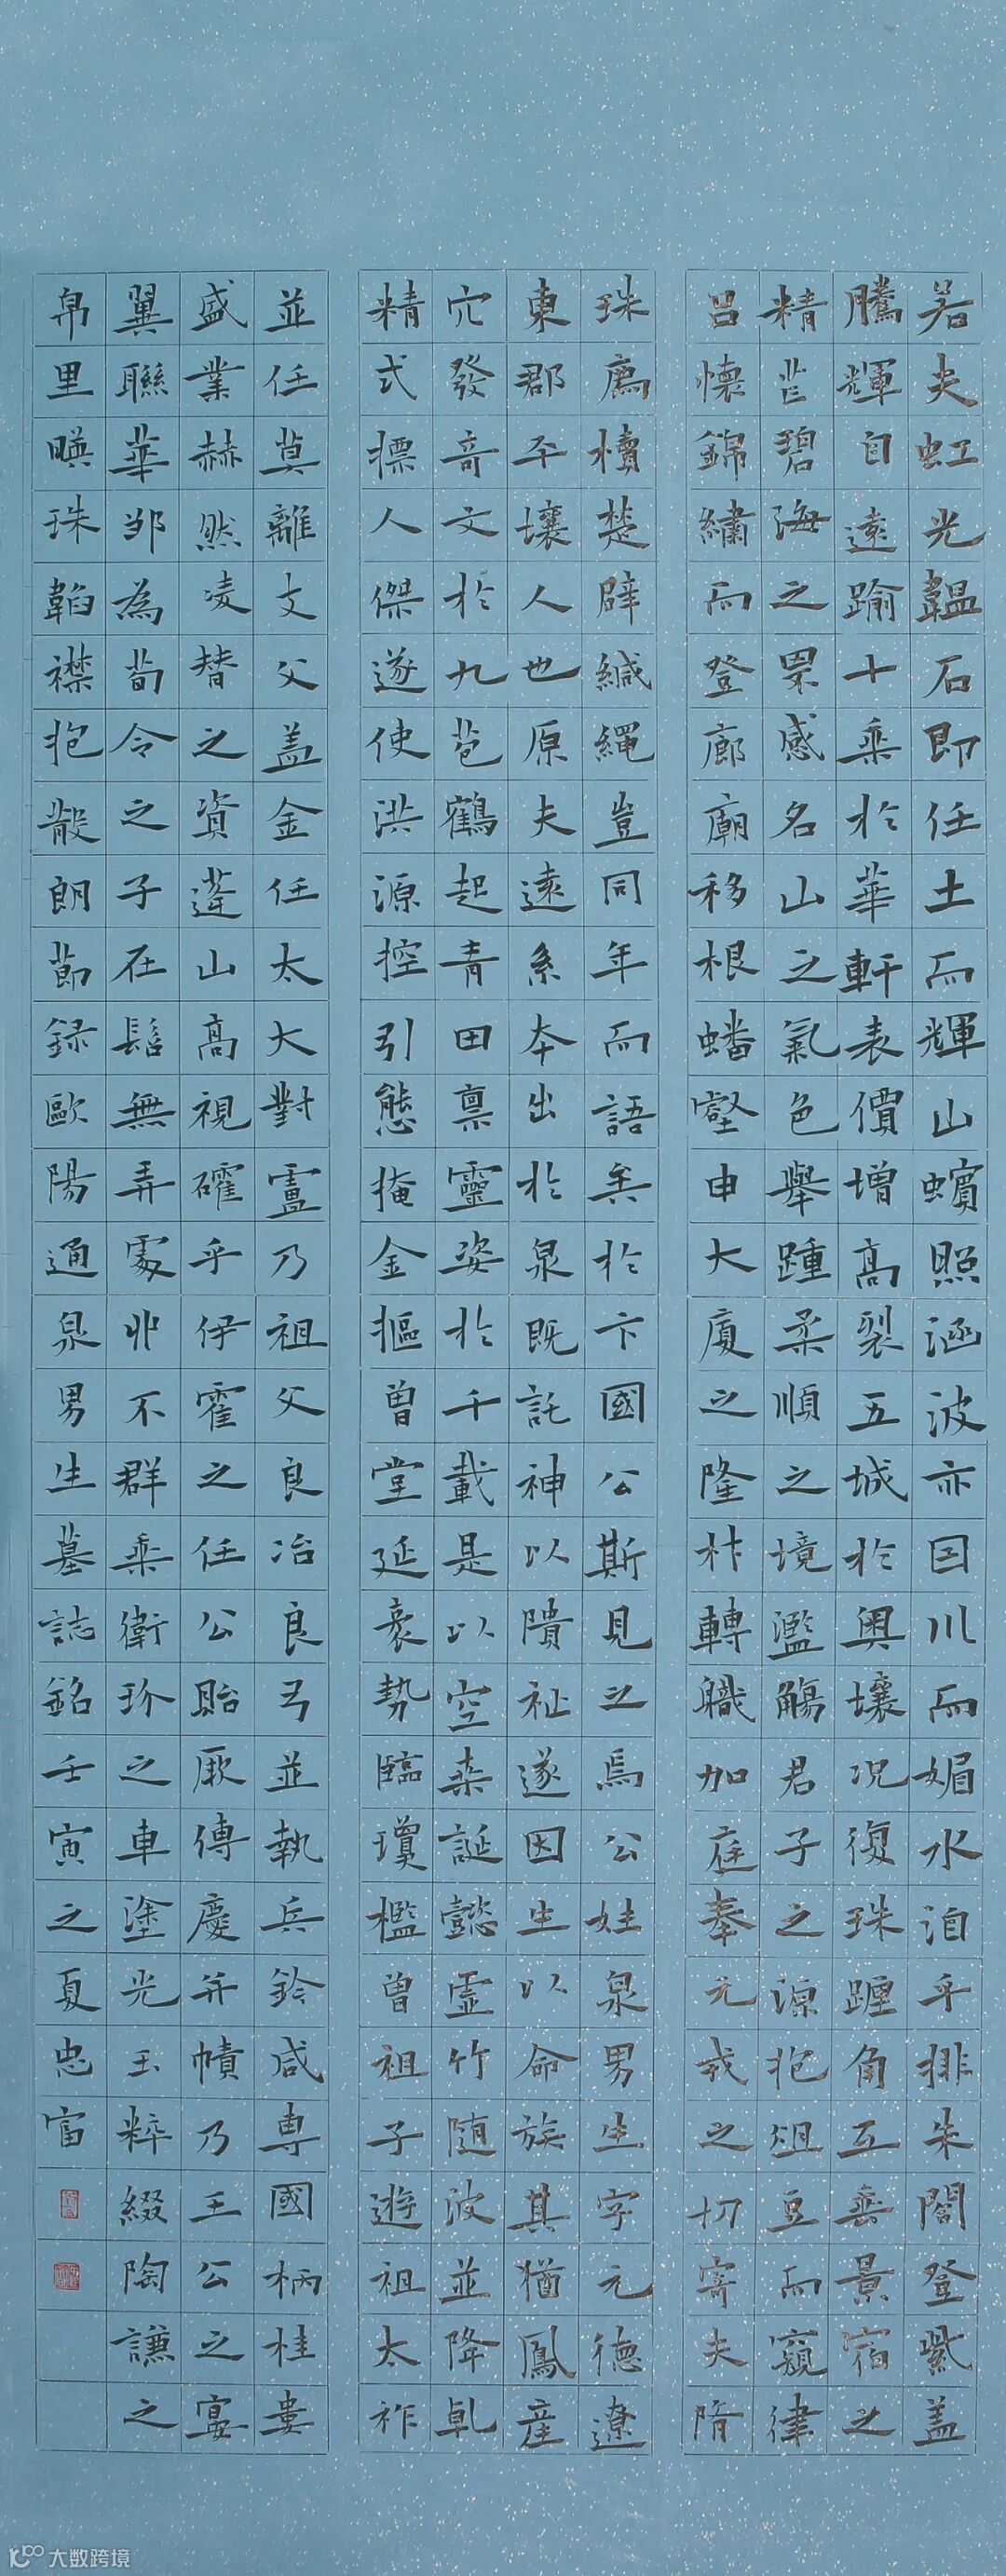 若夫虹光韞石即任土而輝山蠙照涵波亦因川而媚水洎乎排朱閣登紫蓋
騰輝自遠踰十乘於華軒表價增高裂五城於奧壤況復珠躔角互垂景宿之
精芒碧海之罘感名山之氣色舉踵柔順之境濫觴君子之源抱俎豆而窺律
呂懷錦繡而登廊廟移根蟠壑申大廈之隆材轉職加庭奉元戎之切寄夫隋
珠薦櫝楚辟緘繩豈同年而語矣於卞國公斯見之焉公姓泉男生字元德遼
東郡平壤人也原夫遠系本出於泉既託神以隤祉遂因生以命族其猶鳳產
穴發奇文於九苞鶴起青田稟靈姿於千載是以空桑誕懿虛竹隨波並降乹
精式摽人傑遂使洪源控引態掩金樞曾堂延袤勢臨瓊檻曾祖子遊祖太祚
並任莫離支父蓋金任太大對盧乃祖父良冶良弓並執兵鈐咸專國柄桂婁
盛業赫然凌替之資蓬山高視確乎伊霍之任公貽厥傳慶弁幘乃王公之宴
翼聯華邹為荀令之子在髫無弄處丱不群乘衛玠之車塗光玉粹綴陶謙之
帛里暎珠韜襟抱散朗節錄歐陽通泉男生墓誌銘壬寅之夏忠富
大数跨境